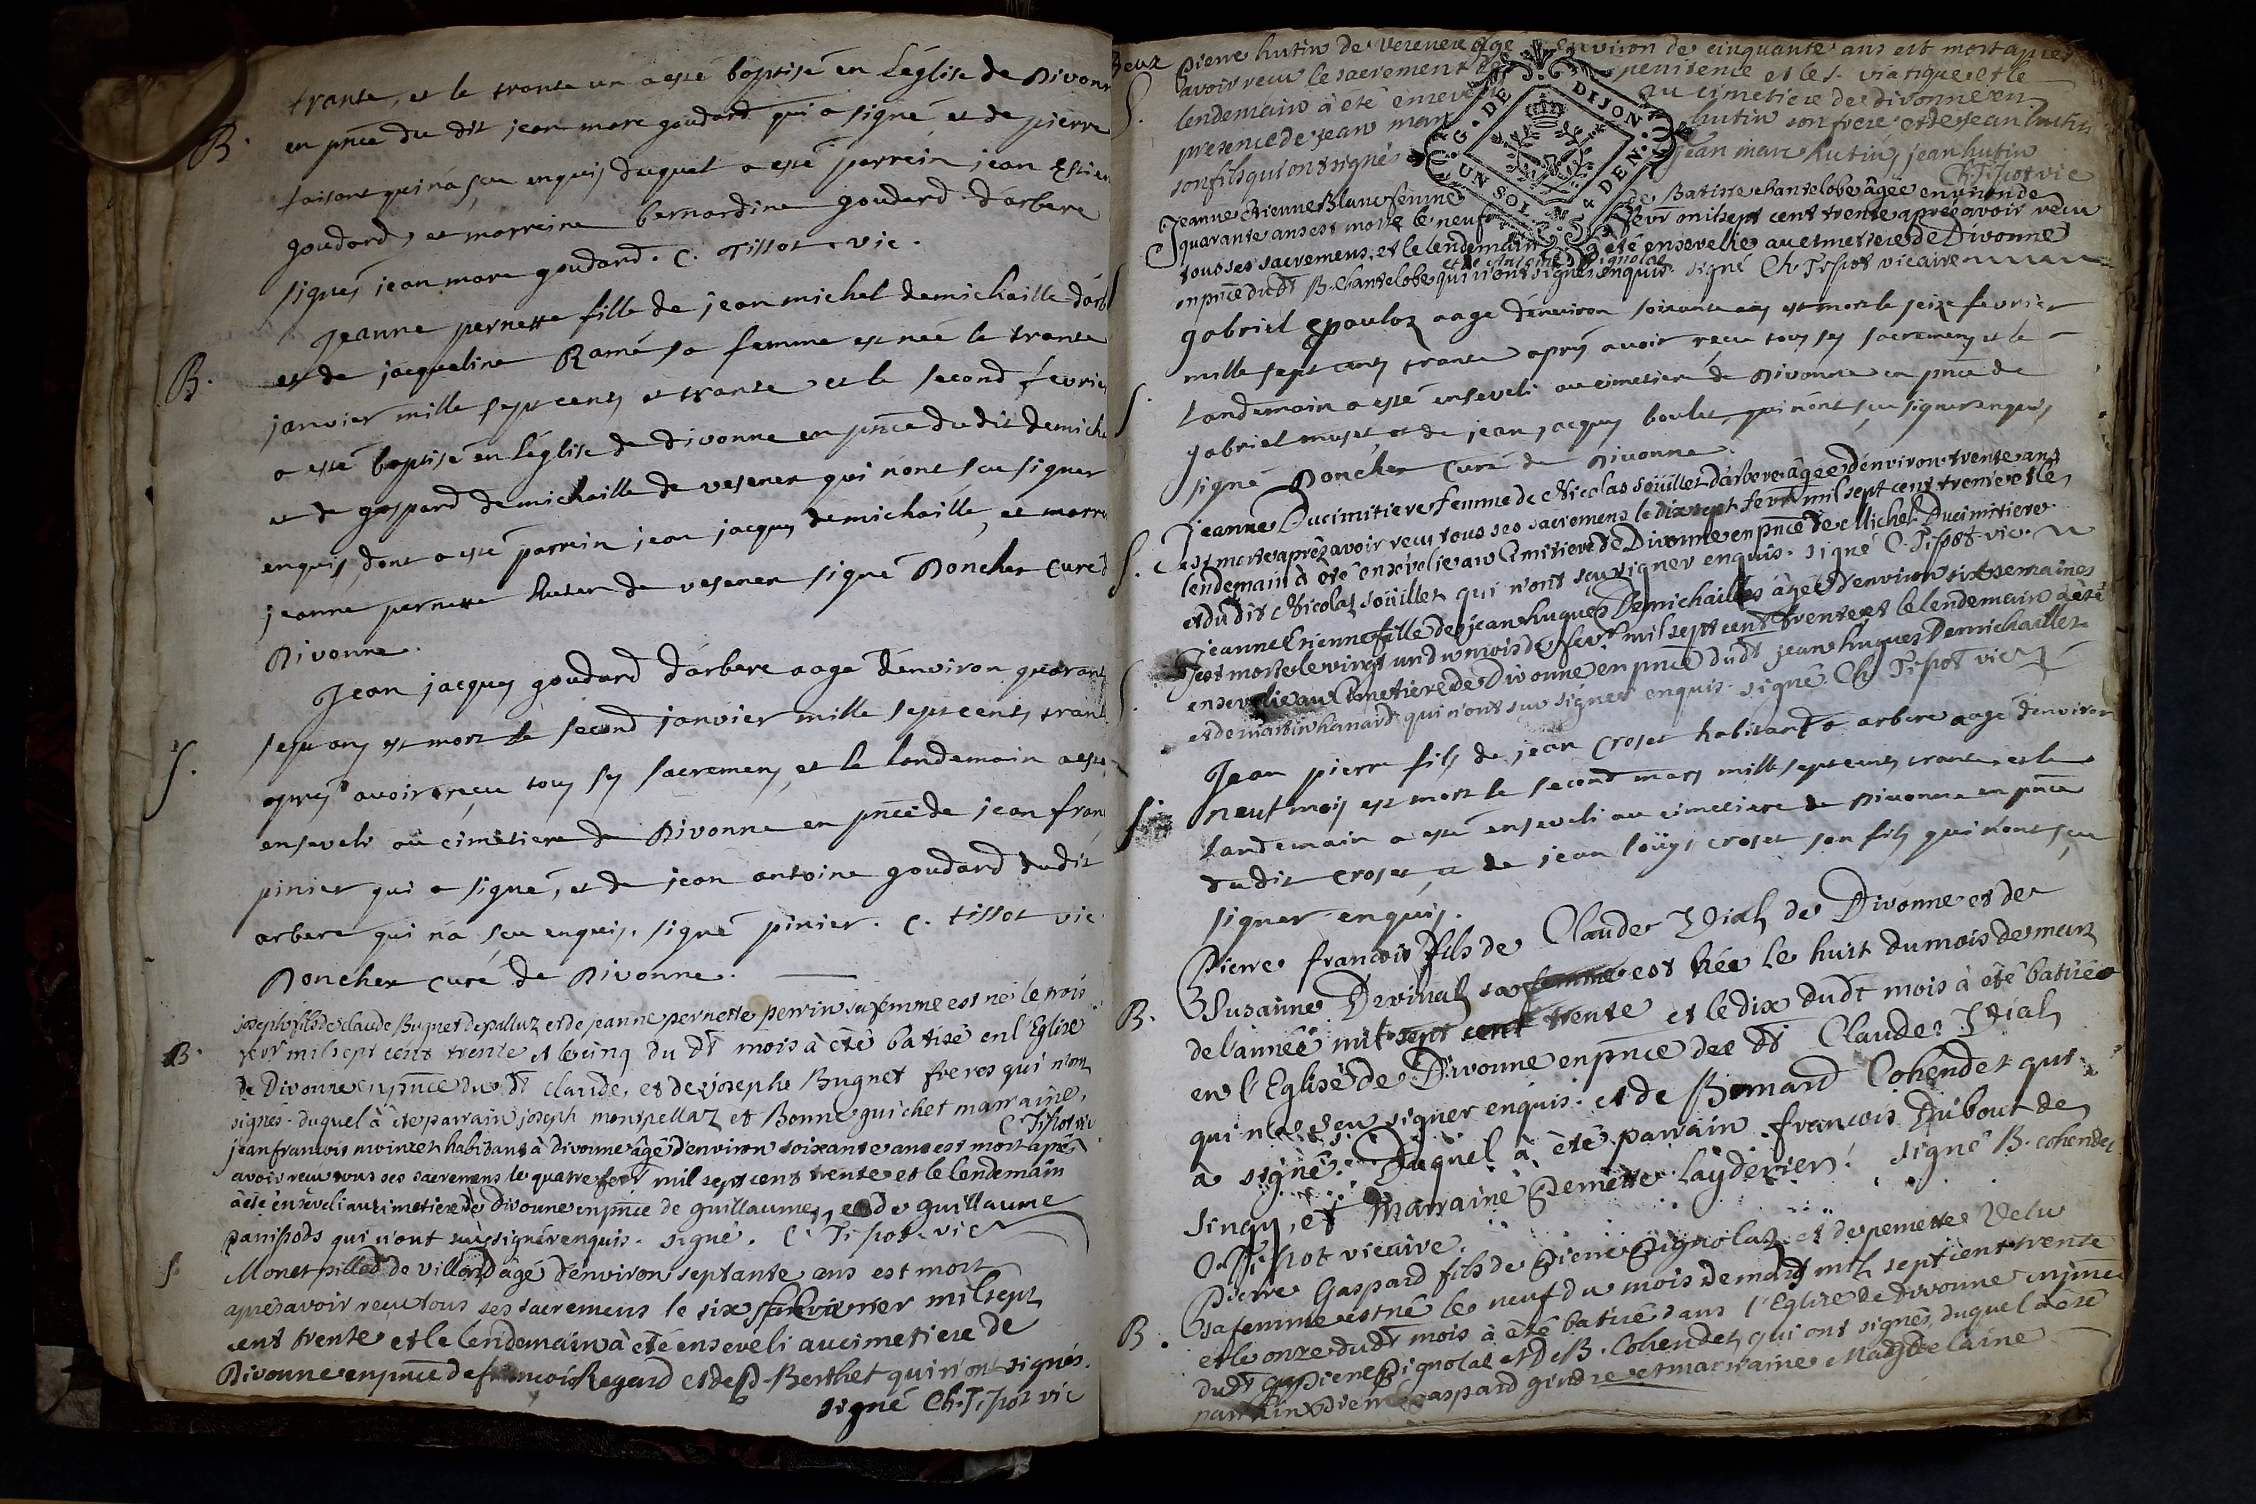 trante, et le trante un a esté baptisé en L'église de Divonne
B. en pnce du dit jean marc goudard qui a signé et de pierre
faisant qui n'a sçu enquis duquel a esté parrein jean Estien
goudard, et marreine bernardine goudard d'arbere
signés jean marc goudard. C. Tissot. vic.
Jeanne pernette fille de jean michel demichaille d'arb
B. et de jacqueline Ramé sa femme est née le trante
janvier mille sept cents et trante et le second fevrier
a esté baptisé en L'église de divonne en pnce du dit demicha
et de gaspard demichaille de vesenex qui n'ont sçu signer
enquis, dont a esté parrein jean jacques demichaille, et marre
jeanne pernette de vesenex signé Doncher Curé d
Divonne.
Jean jacques goudard d'arbere aagé d'environ quarante
sept ans est mort le second janvier mille sept cents trante
S. apres avoir reçu tous ses sacremens, et le landemain a esté
enseveli au cimetiere de Divonne en pnce de jean fran
pinier qui a signé, et de jean antoine goudard dudit
arbere qui n'a sçu enquis. signé pinier. C. tissot vic.
Doncher curé de Divonne.
joseph fils de claude Bugnet de palluz et de jeanne pernette perrin sa femme est né le trois
B. fevr mil sept cent trente et le cinq du dt mois à été batisé en l'Eglise
de Divonne en pnce du dt claude, et de joseph Bugnet freres qui n'ont
signés. duquel à été parrain joseph montpellaz et Bonne guichet marraine.
C. Tissot vic
jean francois moinzet habitant à divonne âgé d'environ soixante ans est mort après
avoir reçu tous ses sacremens le quatre fevr mil sept cent trente et le lendemain
à été enséveli au cimetiere de Divonne en pnce de guillaume, et de guillaume
panissods qui n'ont sçu signer enquis. signé. C. Tissot. vic
S. Monet pillod de villard âgé d'environ septante ans est mort
après avoir reçu tous ses sacremens le six fevrier mil sept
cent trente et le lendemain à été enséveli au cimetiere de
Divonne en pnce de francois Regard et de Berthet qui n'ont signés.
signé Ch. Tissot vic
deux Pierre hutin de vesenex âgé environ de cinquante ans est mort apres
S. avoir recu le sacrement de penitence et le s. viatique et le
lendemain à été enseveli au cimetiere de divonne en
presence de jean marc hutin son frere et de jean hutin
son fils qui ont signés jean marc hutin, jean hutin
Ch. Tissot vic
Jeanne Etienne Blanc femme de Batiste chantelobe âgée environ de
quarante ans est morte le neuf fevr mil sept cent trente après avoir recu
tous ses sacremens, et le lendemain a été ensevelie au cimetiere de Divonne
et de Pignolas
en pnce du dt B. Chantelobe qui n'ont signés enquis. signé Ch. Tissot vicaire
gabriel epaulaz aagé d'environ soixante ans est mort le seize fevrier
mille sept cents trante après avoir recu tous ses sacremens et le
S. landemain a esté enseveli au cimetiere de Divonne en pnce de
gabriel muset, et de jean jacques boulet, qui n'ont sçu signer enquis
signé Doncher Curé de Divonne.
Jeanne Ducimitiere femme de Nicolas soüillet d'arbere âgée d'environ trente ans
S. est morte après avoir recu tous ses sacremens le dix sept fevr mil sept cent trente et le
lendemain à été ensévelie au Cimitiere de Divonne en pnce de Michel Ducimitiere
et du dit Nicolas soüillet qui n'ont sçu signer enquis. signé C. Tissot. vic.
Jeanne Etienne fille de jean hugues Demichailles âgée d'environ six semaines
S. est morte le vingt un du mois de fevr mil sept cent trente et le lendemain à été
ensevelie au Cimetiere de Divonne en pnce du dt jean hugues Demichailles
et de martin hanard qui n'ont sçu signer enquis. signé Ch. Tissot vic
Jean pierre fils de jean Croset habitant a arbere aagé d'environ
S. neuf mois est mort le second mars mille sept cents trante, et le
landemain a esté enseveli au cimetiere de Divonne en pnce
du dit Croset, et de jean loüys croset son fils qui n'ont sçu
signer enquis.
Pierre francois fils de Claude Vial de Divonne et de
B. Susanne Devinal sa femme est née le huit du mois de mars
de l'année mil sept cent trente et le dix dudt mois à été batisée
en l'Eglise de Divonne en pnce du dt Claude Vial
qui n'a sçu signer enquis. et de Bernard Cohendet qui
à signé. Duquel à été parrain francois Dubout de
singy, et Marraine Pernette Layderier. signé B. cohendet
C. Tissot vicaire.
Pierre Gaspard fils de Pierre Pignolaz et de pernette Velu
sa femme est né le neuf du mois de mars mil sept cent trente
B. et le onze du dt mois à été batisé dans l'Eglise de Divonne en pnce
du dt Pierre Pignolas et de B. Cohendet, qui ont signés, duquel à été
parrain Pierre Gaspard gindre et marraine Magdelaine
C.G. DE DIJON
UN SOL & DEN.